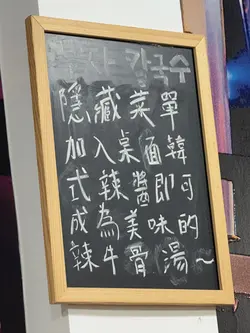 칼국수
隱藏菜單
加入桌面韓
式辣醬即可
成為美味的
辣牛骨湯~